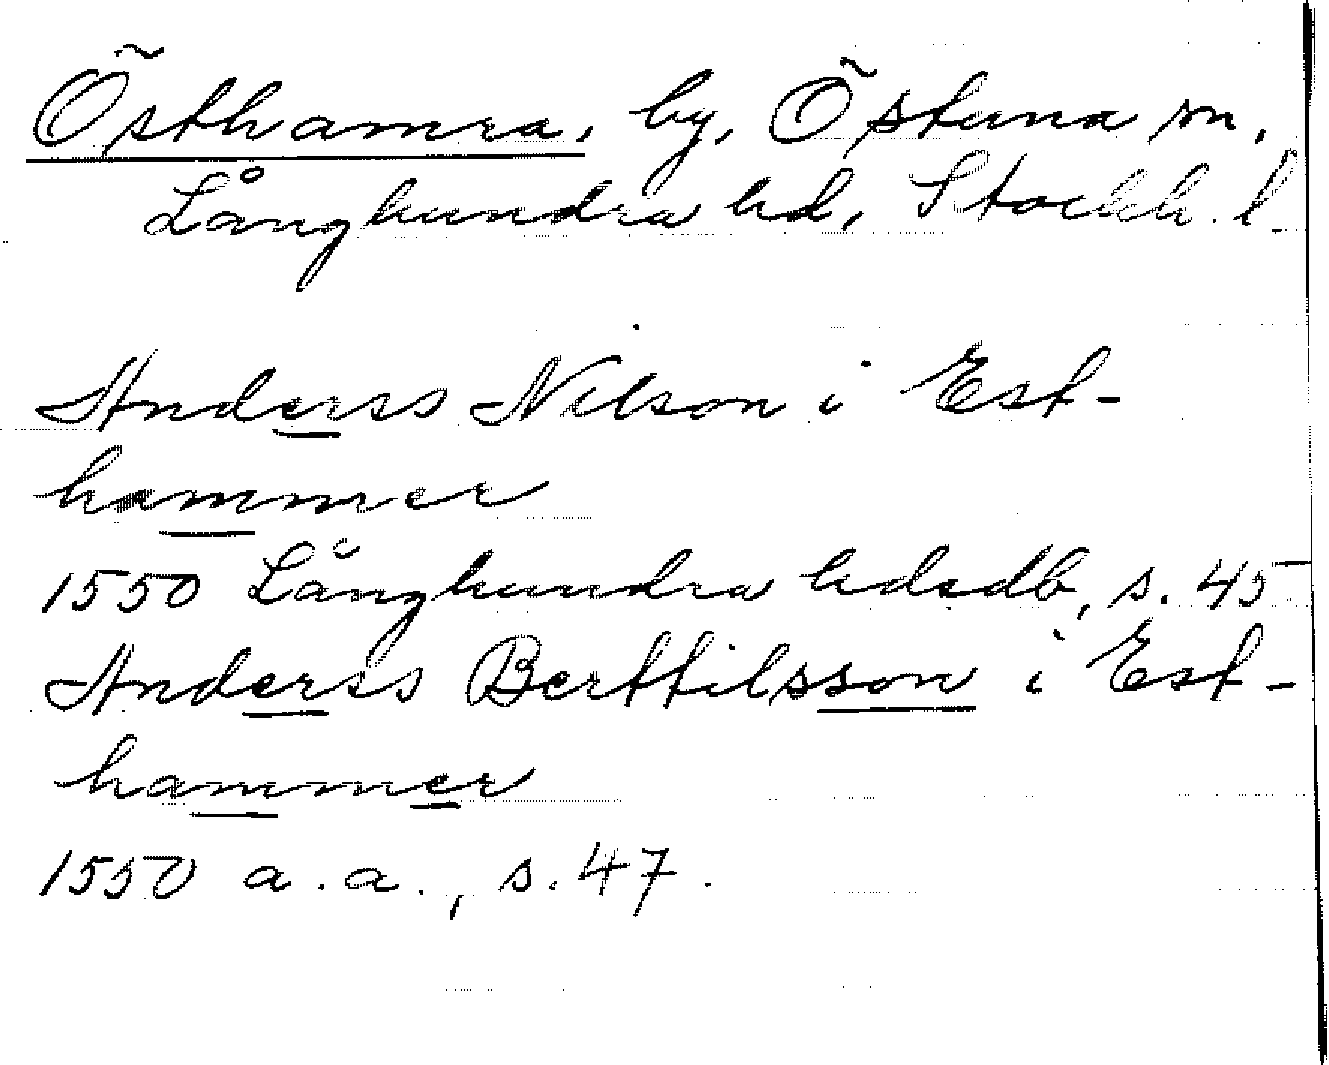 Östhamra, by, Östuna sn,
Långhundra hd, Stockh. l.
Anderss Nilson i Est-
hammer
1550 Långhundra hdsdb, s. 45
Anderss Berttilsson i Est-
hammer
1550 a. a., s. 47.